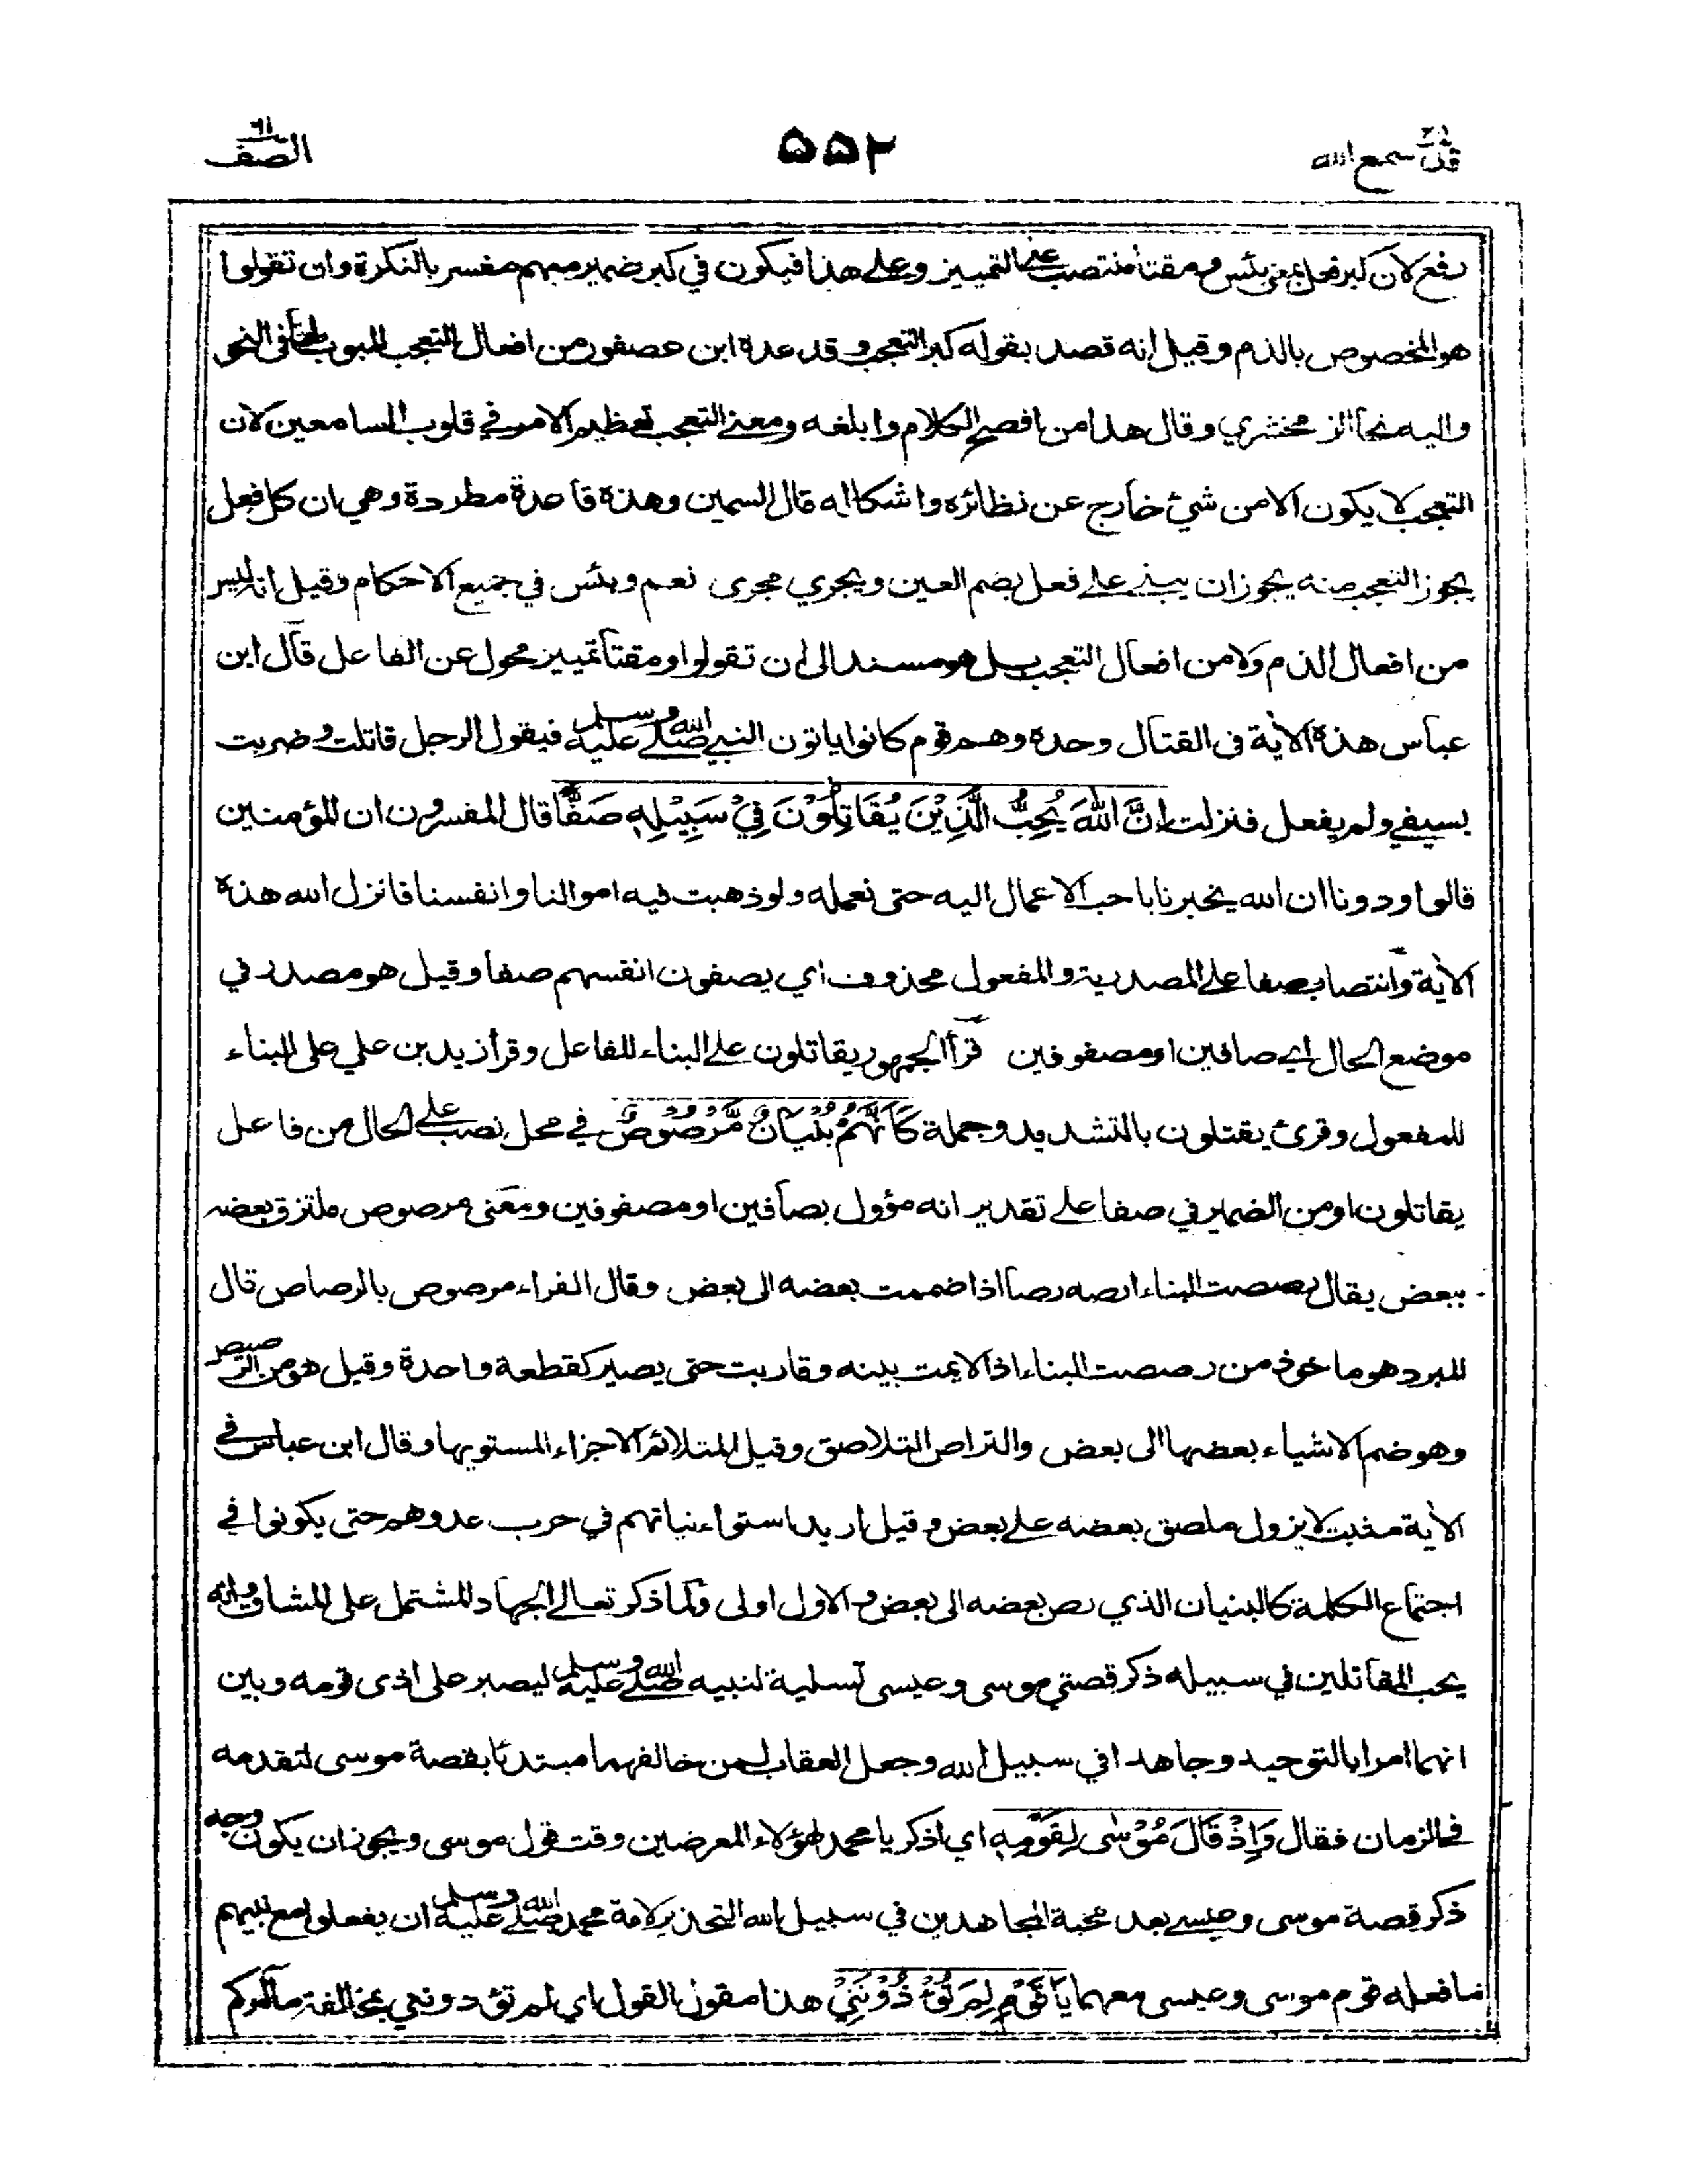 قد سمع الله ٢٨
٥٥٢
الصف ٦١
رفع لان كبر فعل بمعنى بئس ومقتا منتصب على التمييز وعلى هذا فيكون في كبر ضمير مبهم مفسر بالنكرة وان تقولوا
هو المخصوص بالذم وقيل انه قصد بقوله كبر التعجب وقد عده ابن عصفور من افعال التعجب المبوب لها في النحو
واليه نحا الزمخشري وقال هذا من افصح الكلام وابلغه ومعنى التعجب تعظيم الامر في قلوب السامعين لان
التعجب لا يكون الا من شئ خارج عن نظائره واشكاله قال السمين وهذه قاعدة مطردة وهي ان كل فعل
يجوز التعجب منه يجوز ان يبنى على فعل بضم العين ويجري مجرى نعم وبئس في جميع الاحكام وقيل انه ليس
من افعال الذم ولا من افعال التعجب بل هو مسند الى ان تقولوا ومقتا تمييز محول عن الفاعل قال ابن
عباس هذه الآية في القتال وحده وهم قوم كانوا ياتون النبي صلى الله عليه وسلم فيقول الرجل قاتلت وضربت
بسيفي ولم يفعل فنزلت اِنَّ اللّٰهَ يُحِبُّ الَّذِيْنَ يُقَاتِلُوْنَ فِيْ سَبِيْلِهٖ صَفًّا قال المفسرون ان المؤمنين
قالوا وددنا ان الله يخبرنا باحب الاعمال اليه حتى نعمله ولو ذهبت فيه اموالنا وانفسنا فانزل الله هذه
الآية وانتصاب صفا على المصدرية والمفعول محذوف اي يصفون انفسهم صفا وقيل هو مصدر في
موضع الحال اي صافين او مصفوفين قرأ الجمهور يقاتلون على البناء للفاعل وقرأ زيد بن علي على البناء
للمفعول وقرئ يقتلون بالتشديد وجملة كَاَنَّهُمْ بُنْيَانٌ مَّرْصُوْصٌ في محل نصب على الحال من فاعل
يقاتلون او من الضمير في صفا على تقدير انه مؤول بصافين او مصفوفين ومعنى مرصوص ملتزق بعضه
ببعض يقال رصصت البناء ارصه رصا اذا ضممت بعضه الى بعض وقال الفراء مرصوص بالرصاص قال
المبرد هو ماخوذ من رصصت البناء اذا لايمت بينه وقاربت حتى يصير كقطعة واحدة وقيل هو من الترصيص
وهو ضم الاشياء بعضها الى بعض والتراص التلاصق وقيل المتلائم الاجزاء المستويها وقال ابن عباس في
الآية مثبت لا يزول ملصق بعضه على بعض وقيل اريد استواء نياتهم في حرب عدوهم حتى يكونوا في
اجتماع الكلمة كالبنيان الذي رص بعضه الى بعض والاول اولى ولما ذكر تعالى الجهاد المشتمل على المشاق وانه
يحب المقاتلين في سبيله ذكر قصتي موسى وعيسى تسلية لنبيه صلى الله عليه وسلم ليصبر على اذى قومه وبين
انهما امرا بالتوحيد وجاهدا في سبيل الله وجعل العقاب لمن خالفهما مبتدئا بقصة موسى لتقدمه
في الزمان فقال وَاِذْ قَالَ مُوْسٰى لِقَوْمِهٖ اي اذكر يا محمد لهؤلاء المعرضين وقت قول موسى ويجوز ان يكون وجه
ذكر قصة موسى وعيسى بعد محبة المجاهدين في سبيل الله التحذير لامة محمد صلى الله عليه وسلم ان يفعلوا مع نبيهم
ما فعله قوم موسى وعيسى معهما يَا قَوْمِ لِمَ تُؤْذُوْنَنِيْ هذا مقول القول اي لم تؤذونني بمخالفة ما آمركم